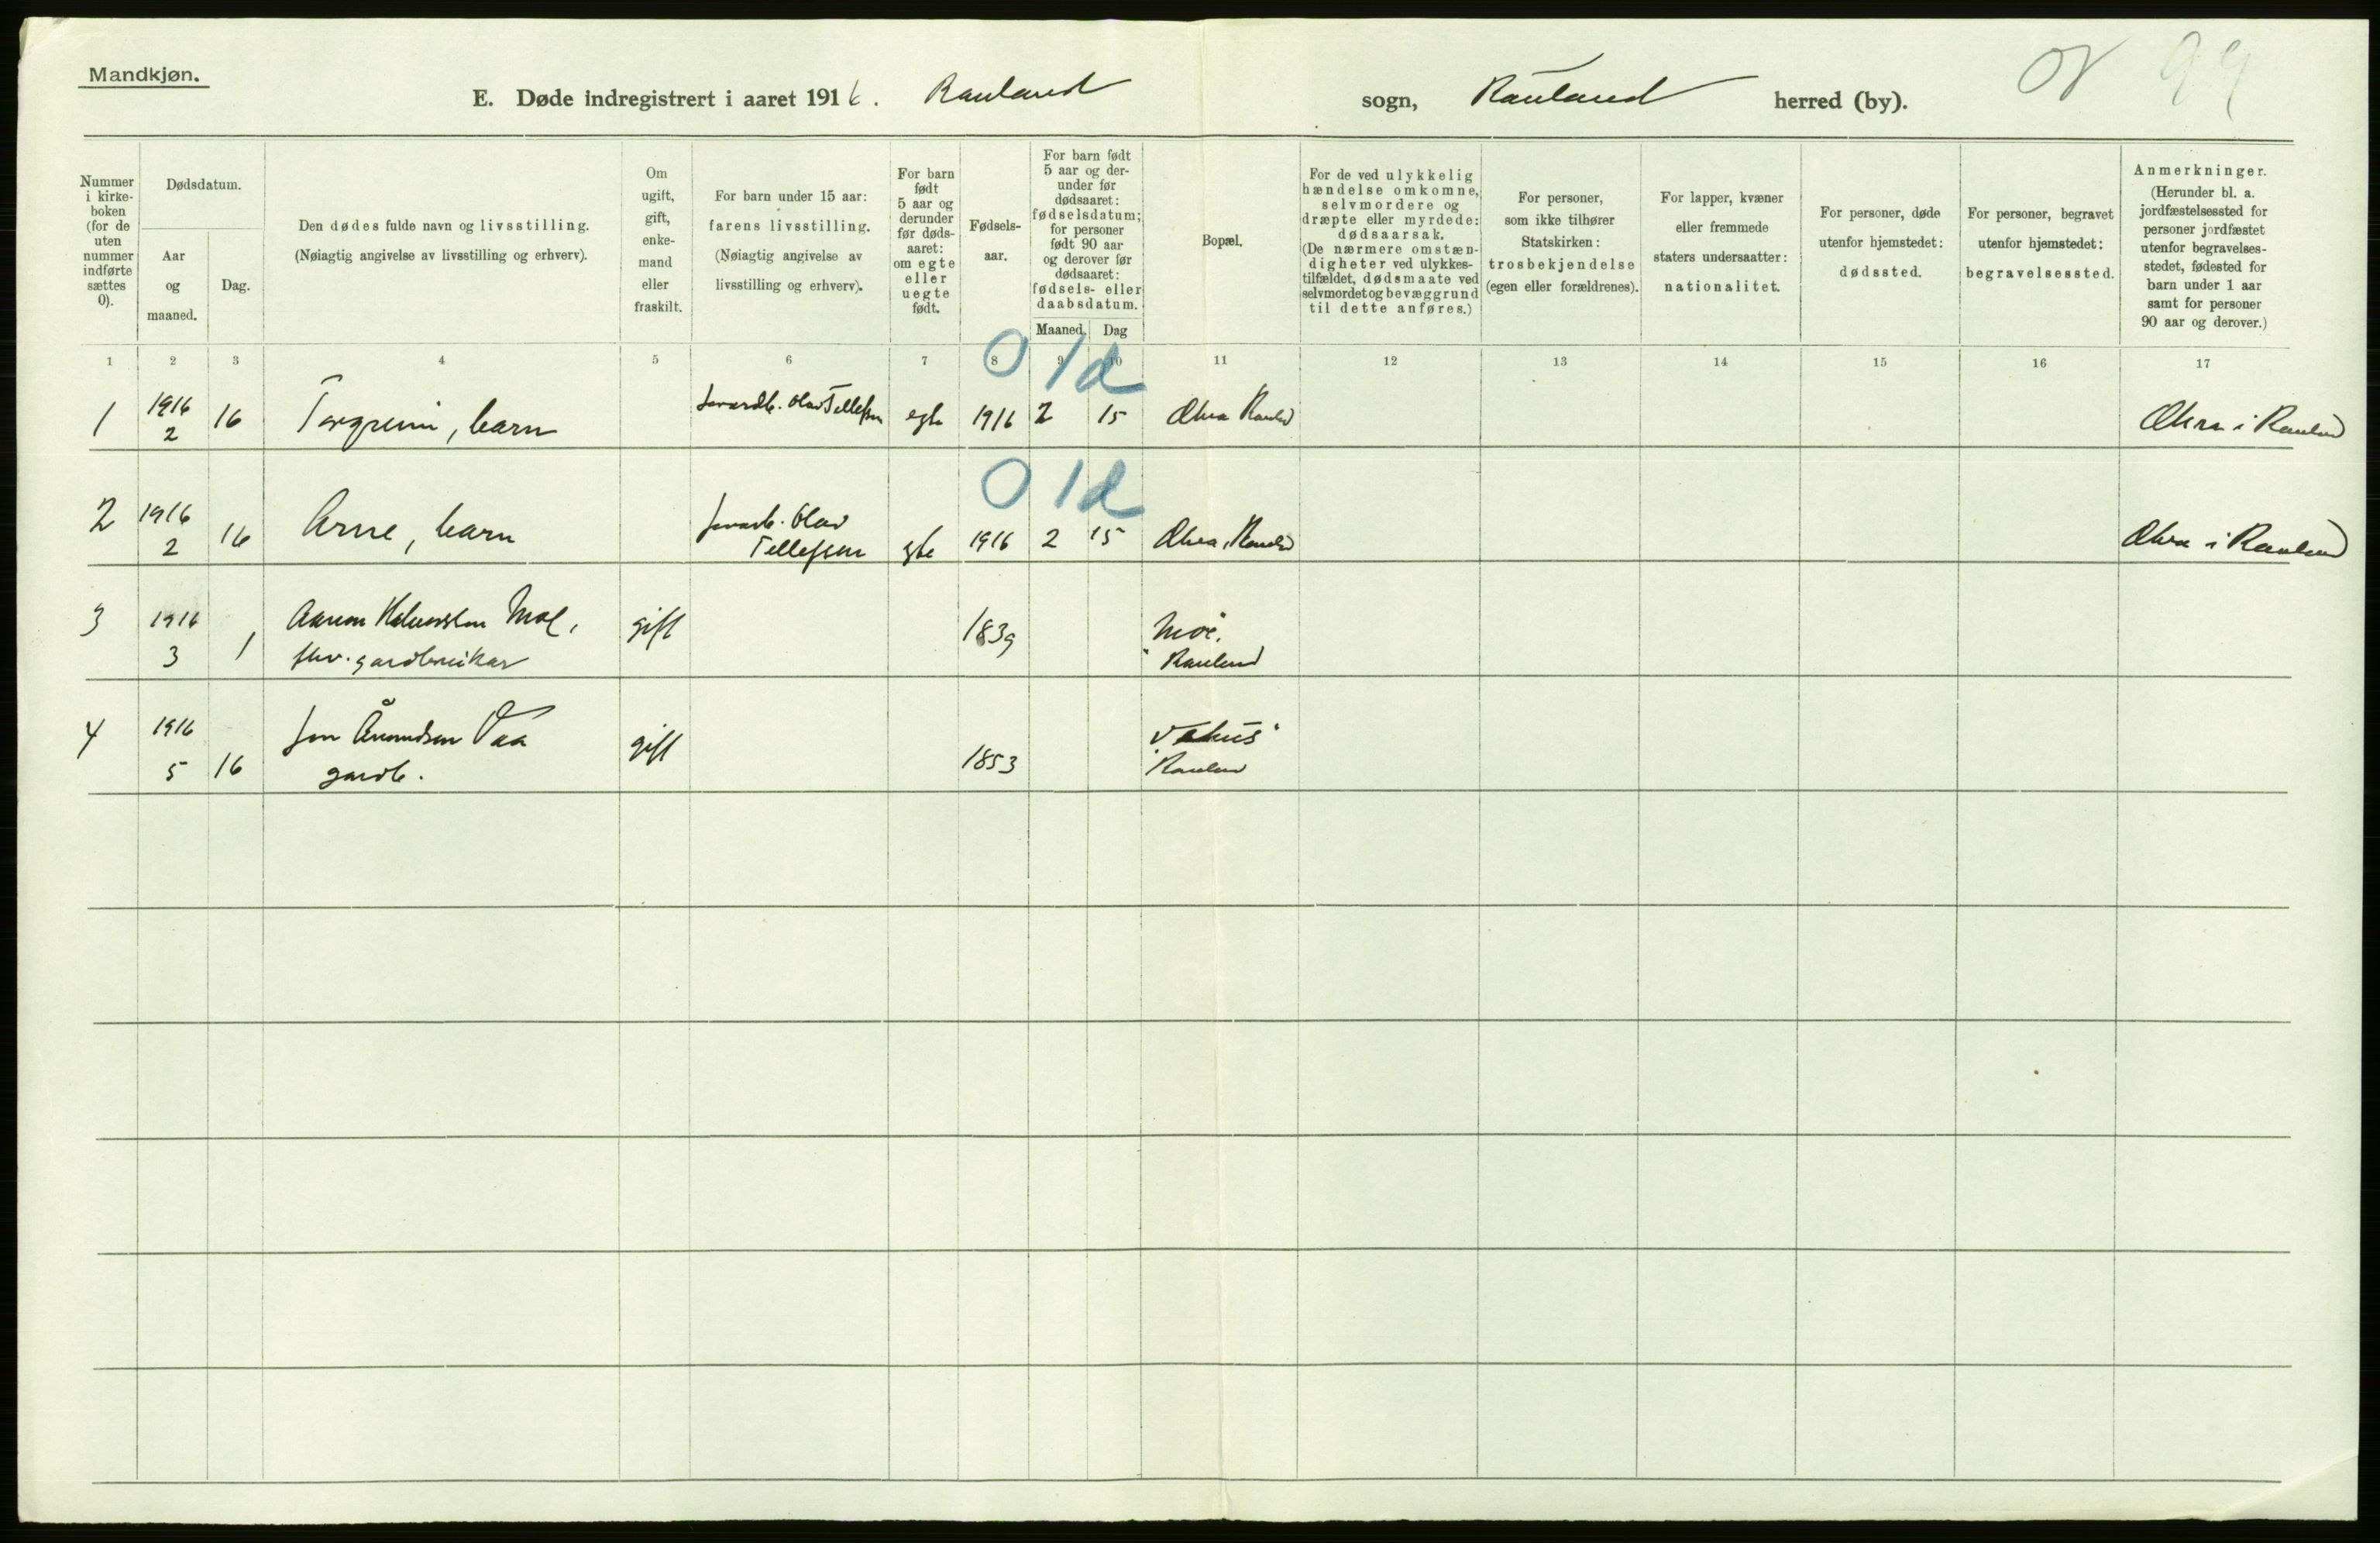 Mandkjøn.
E. Døde indregistrert i aaret 1916. Rauland sogn, Rauland herred (by).
99
Nummer i kirke-boken (for de uten nummer indførte sættes 0).
Dødsdatum.
Aar og maaned.
Dag.
Den dødes fulde navn og livsstilling.
(Nøiagtig angivelse av livsstilling og erhverv).
Om ugift, gift, enke-mand eller fraskilt.
For barn under 15 aar:
farens livsstilling.
(Nøiagtig angivelse av livsstilling og erhverv).
For barn født 5 aar og derunder før døds-aaret: om egte eller uegte født.
Fødsels-aar.
For barn født 5 aar og der-under før dødsaaret: fødselsdatum; for personer født 90 aar og derover før dødsaaret: fødsels- eller daabsdatum.
Maaned. Dag
Bopæl.
For de ved ulykkelig hændelse omkomne, selvmordere og dræpte eller myrdede: dødsaarsak.
(De nærmere omstæn-digheter ved ulykkes-tilfældet, dødsmaate ved selvmordet og bevæggrund til dette anføres.)
For personer, som ikke tilhører Statskirken: trosbekjendelse (egen eller forældrenes).
For lapper, kvæner eller fremmede staters undersaatter: nationalitet.
For personer, døde utenfor hjemstedet: dødssted.
For personer, begravet utenfor hjemstedet: begravelsessted.
Anmerkninger.
(Herunder bl. a. jordfæstelsessted for personer jordfæstet utenfor begravelses-stedet, fødested for barn under 1 aar samt for personer 90 aar og derover.)
1 2 3 4 5 6 7 8 9 10 11 12 13 14 15 16 17
0 1d
1 1916 2 16 Torgrim, barn Olav Tellefsen egte 1916 2 15 Rauland i Rauland
0 1d
2 1916 2 16 Arne, barn Olav Tellefsen egte 1916 2 15 Rauland i Rauland
3 1916 3 1 Halvorsen Moe, gift 1839 Moe,
fhv. gardbruikar Rauland
4 1916 5 16 Jon Åmundsen Vaa gift 1853 Våhus
gardb. Rauland